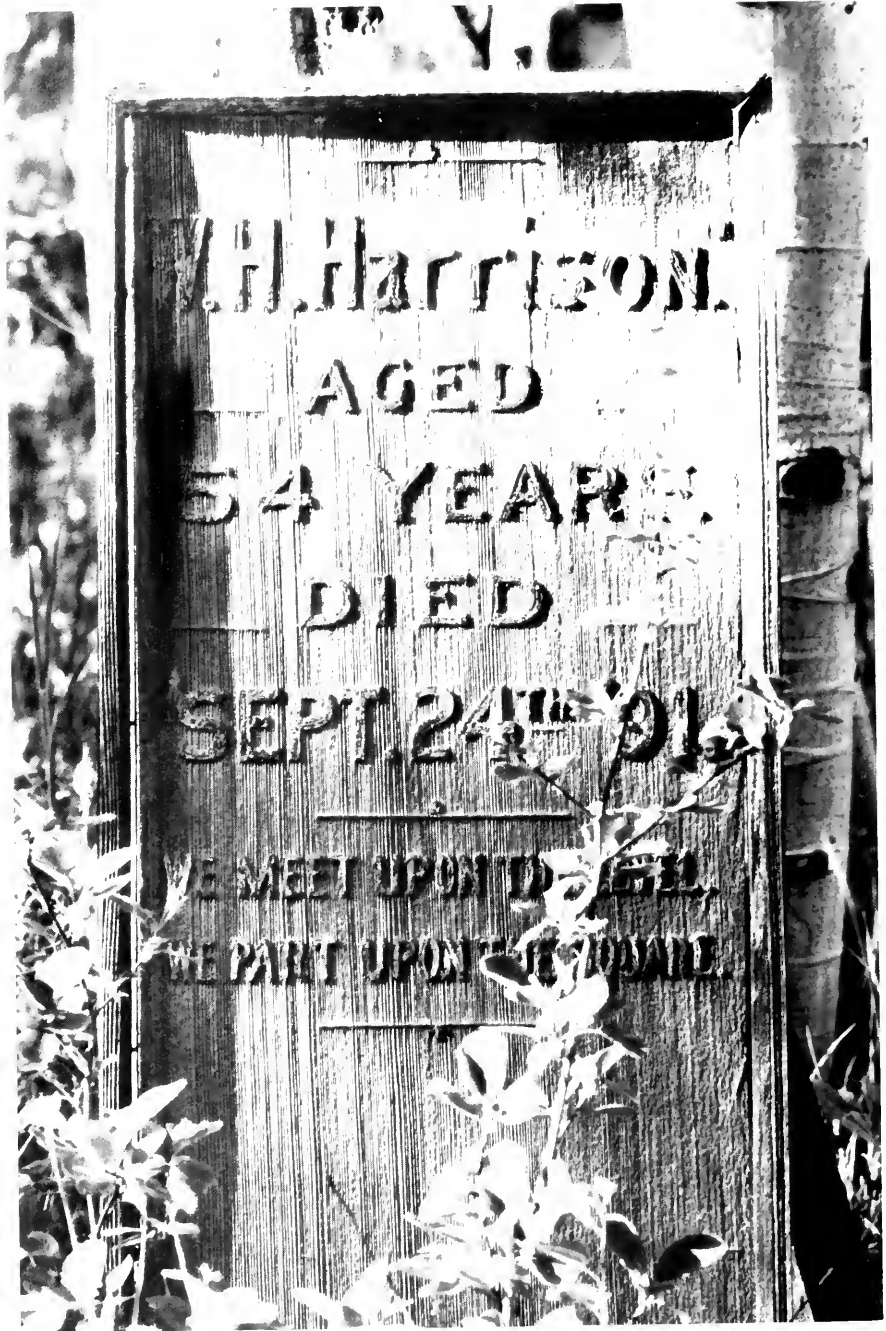 W.H.HarrisON.
AGED
54 YEARS.
DIED
SEPT. 24TH '91.
WE MEET UPON THE LEVEL,
WE PART UPON THE SQUARE.